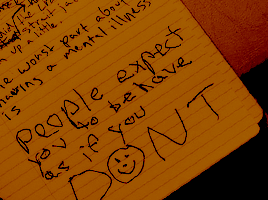 up a little.
the worst part about
having a mental illness
is
people expect
you to behave
as if you
DONT